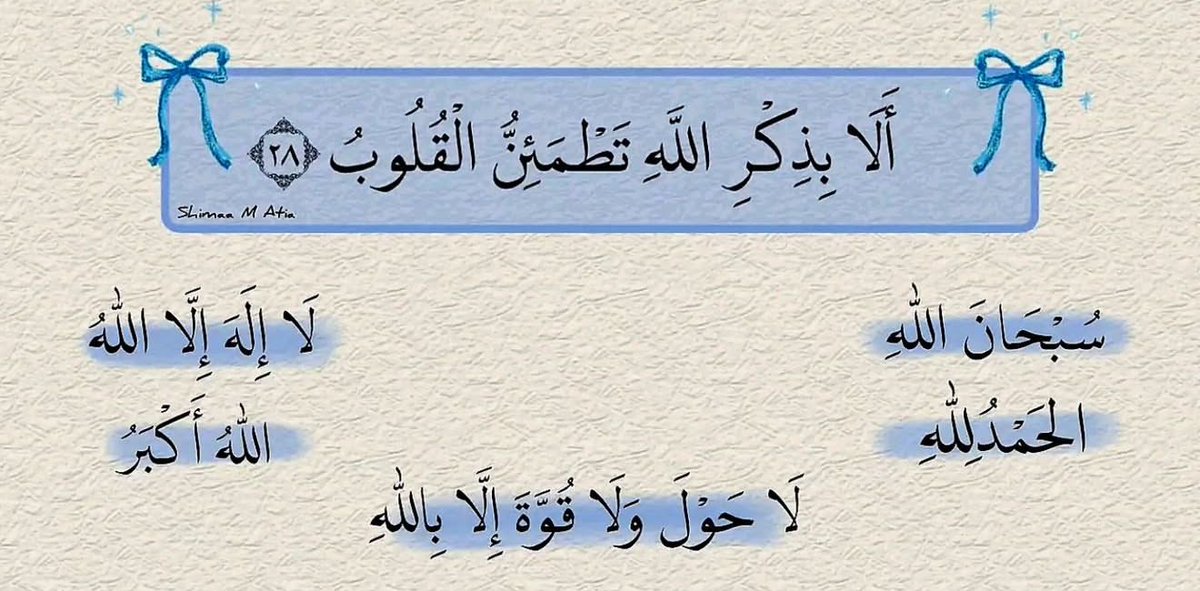 أَلَا بِذِكْرِ اللَّهِ تَطْمَئِنُّ الْقُلُوبُ ٢٨
Shimaa M Atia
سُبْحَانَ اللّٰهِ
لَا إِلَهَ إِلَّا اللّٰهُ
الحَمْدُلِلّٰهِ
اللّٰهُ أَكْبَرُ
لَا حَوْلَ وَلَا قُوَّةَ إِلَّا بِاللّٰهِ